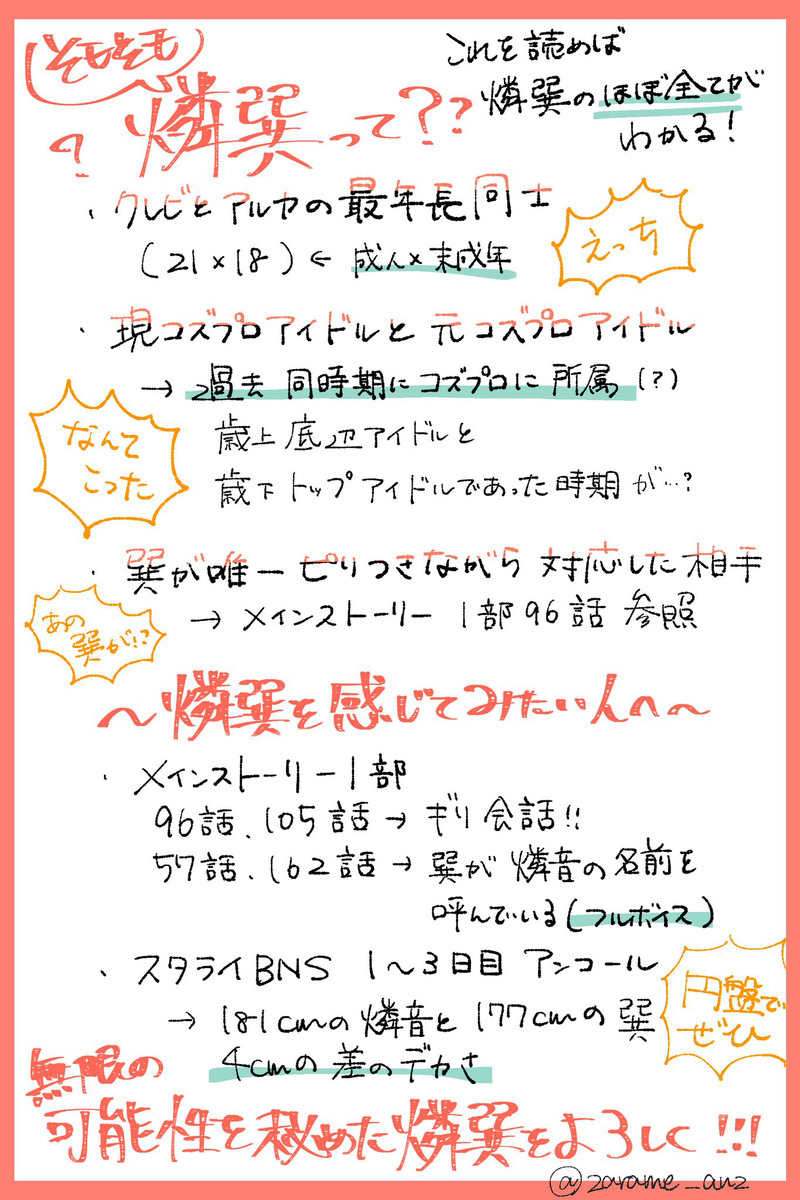 そもそも
？燐巽って？？
これを読めば
燐巽のほぼ全てが
わかる！
・クレビとアルカの最年長同士
(21×18)← 成人×未成年
えっち
・現コズプロアイドルと元コズプロアイドル
→過去同時期にコズプロに所属(？)
なんて
こった
歳上底辺アイドルと
歳下トップアイドルであった時期が…？
・巽が唯一ピリつきながら対応した相手
→メインストーリー1部96話参照
あの
巽が！？
〜燐巽を感じてみたい人へ〜
・メインストーリー1部
96話、105話→ギリ会話!!
57話、162話→巽が燐音の名前を
呼んでいる(フルボイス)
・スタライBNS 1〜3日目アンコール
→181cmの燐音と177cmの巽
4cmの差のデカさ
円盤で
ぜひ
無限の
可能性を秘めた燐巽をよろしく!!!
@zarame_anz